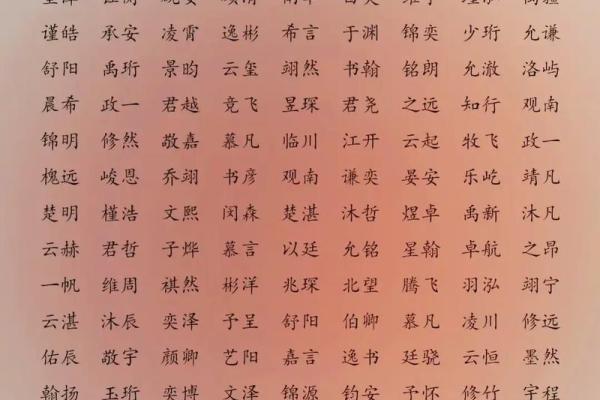 谨皓 承安 凌霄 逸彬 希言 于渊 锦奕 少珩 允谦
舒阳 禹珩 景昀 云玺 翊然 书翰 铭朗 允澈 洛屿
晨希 政一 君越 竞飞 昱琛 君尧 之远 知行 观南
锦明 修然 敬嘉 慕凡 临川 江开 云起 牧飞 政一
槐远 峻恩 乔翊 书彦 观南 谦奕 晏安 乐屹 靖凡
楚明 槿浩 文熙 闵森 楚湛 沐哲 煜卓 禹新 沐凡
云赫 君哲 子烨 慕言 以廷 允铭 星翰 卓航 之昂
一帆 维周 祺然 彬洋 兆琛 北望 腾飞 羽泓 翊宁
云湛 沐辰 奕泽 予呈 舒阳 伯卿 慕凡 凌川 修远
佑辰 敬宇 颜卿 艺阳 嘉言 逸书 廷骁 云恒 墨然
翰扬 玉珩 奕博 文泽 锦源 钧安 予怀 修竹 宇程